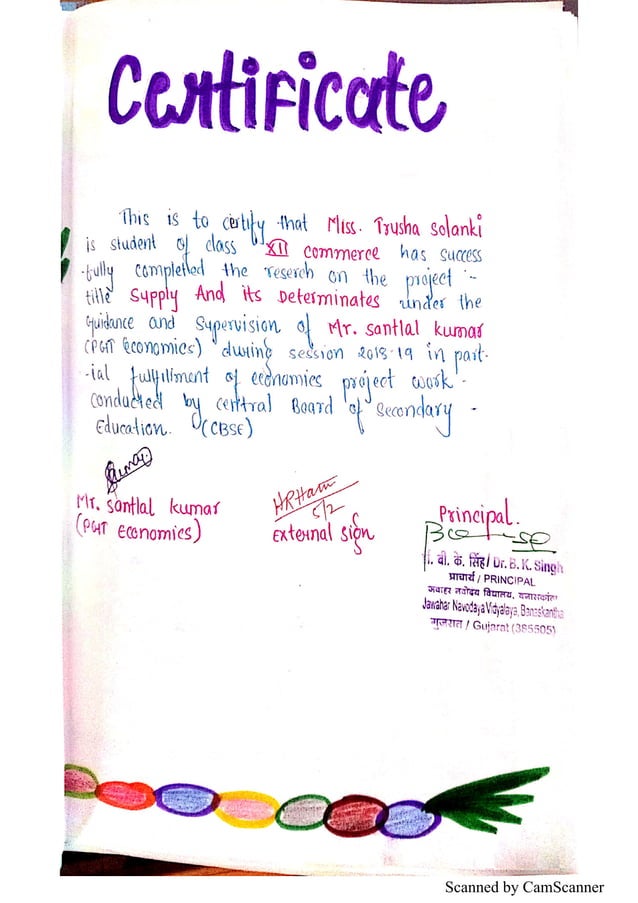 Certificate
This is to certify that Miss. Trusha Solanki
is student of class XII commerce has success
-fully completed the reserch on the project -
title Supply And its Determinates under the
Guidance and Supervision of Mr. santlal kumar
(PGT Economics) during session 2018-19 in part-
-ial fulfillment of economics project work -
conducted by central Board of Secondary -
Education. (CBSE)
Mr. santlal kumar
(PGT Economics)
5/2
External sign
Principal.
वी. के. सिंह / Dr. B. K. Singh
प्राचार्य / PRINCIPAL
जवाहर नवोदय विद्यालय, बनासकांठा
Jawahar Navodaya Vidyalaya, Banaskantha
गुजरात / Gujarat (385505)
Scanned by CamScanner